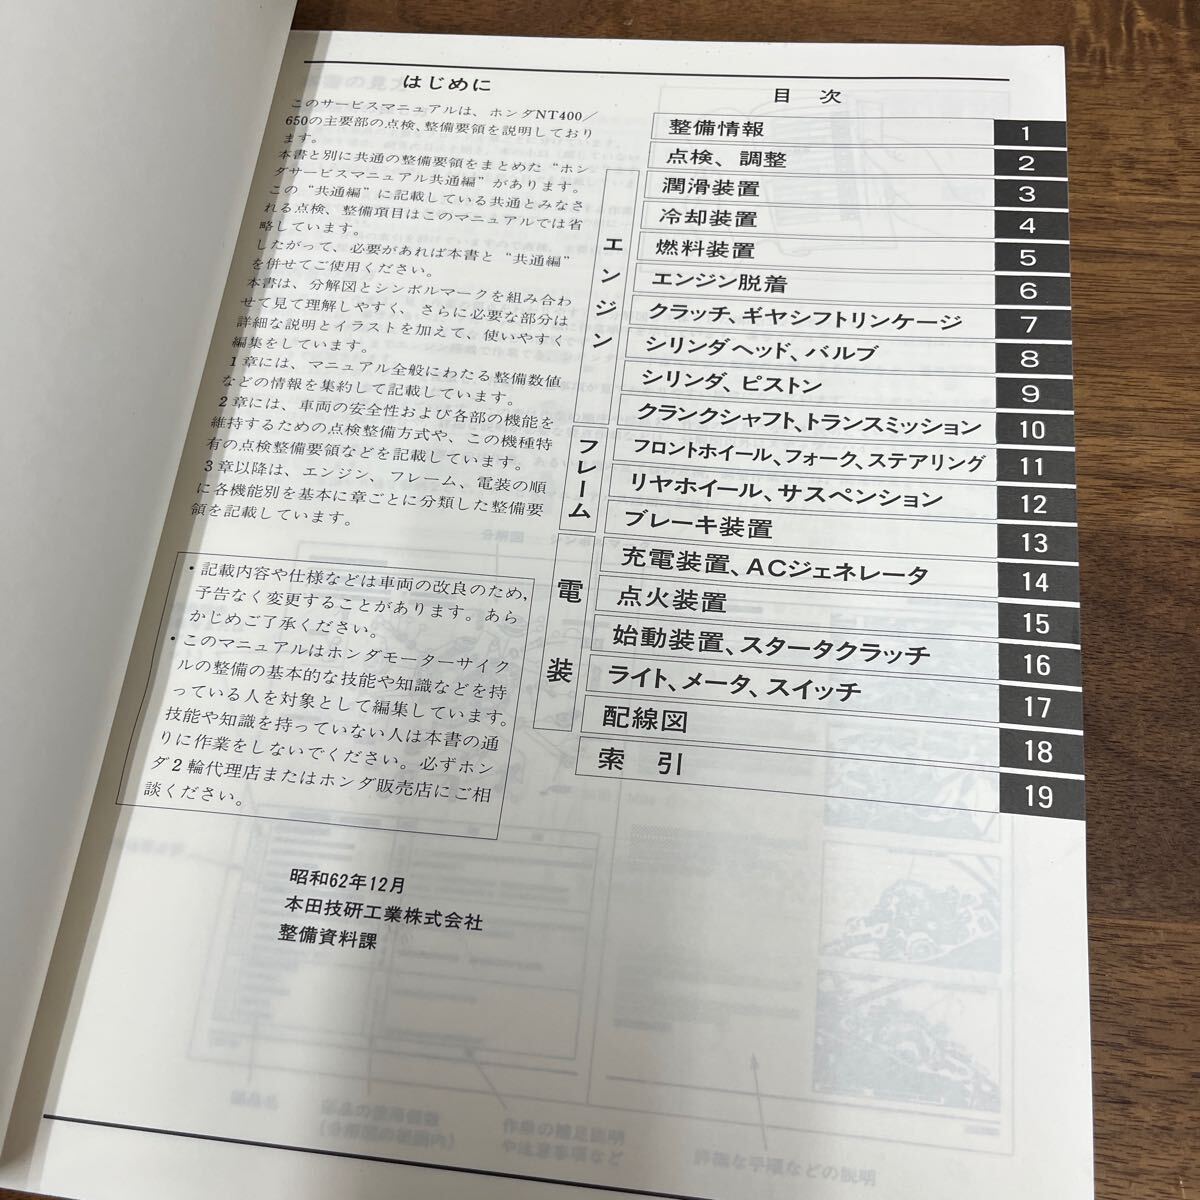 はじめに
このサービスマニュアルは、ホンダNT400／
650の主要部の点検、整備要領を説明しており
ます。
本書と別に共通の整備要領をまとめた“ホン
ダサービスマニュアル共通編”があります。
この“共通編”に記載している共通とみなさ
れる点検、整備項目はこのマニュアルでは省
略しています。
したがって、必要があれば本書と“共通編”
を併せてご使用ください。
本書は、分解図とシンボルマークを組み合わ
せて見て理解しやすく、さらに必要な部分は
詳細な説明とイラストを加えて、使いやすく
編集をしています。
1章には、マニュアル全般にわたる整備数値
などの情報を集約して記載しています。
2章には、車両の安全性および各部の機能を
維持するための点検整備方式や、この機種特
有の点検整備要領などを記載しています。
3章以降は、エンジン、フレーム、電装の順
に各機能別を基本に章ごとに分類した整備要
領を記載しています。
・記載内容や仕様などは車両の改良のため、
予告なく変更することがあります。あら
かじめご了承ください。
・このマニュアルはホンダモーターサイク
ルの整備の基本的な技能や知識などを持
っている人を対象として編集しています。
技能や知識を持っていない人は本書の通
りに作業をしないでください。必ずホン
ダ2輪代理店またはホンダ販売店にご相
談ください。
昭和62年12月
本田技研工業株式会社
整備資料課
目 次
整備情報 1
点検、調整 2
エンジン
潤滑装置 3
冷却装置 4
燃料装置 5
エンジン脱着 6
クラッチ、ギヤシフトリンケージ 7
シリンダヘッド、バルブ 8
シリンダ、ピストン 9
クランクシャフト、トランスミッション 10
フレーム
フロントホイール、フォーク、ステアリング 11
リヤホイール、サスペンション 12
ブレーキ装置 13
電装
充電装置、ACジェネレータ 14
点火装置 15
始動装置、スタータクラッチ 16
ライト、メータ、スイッチ 17
配線図 18
索 引 19